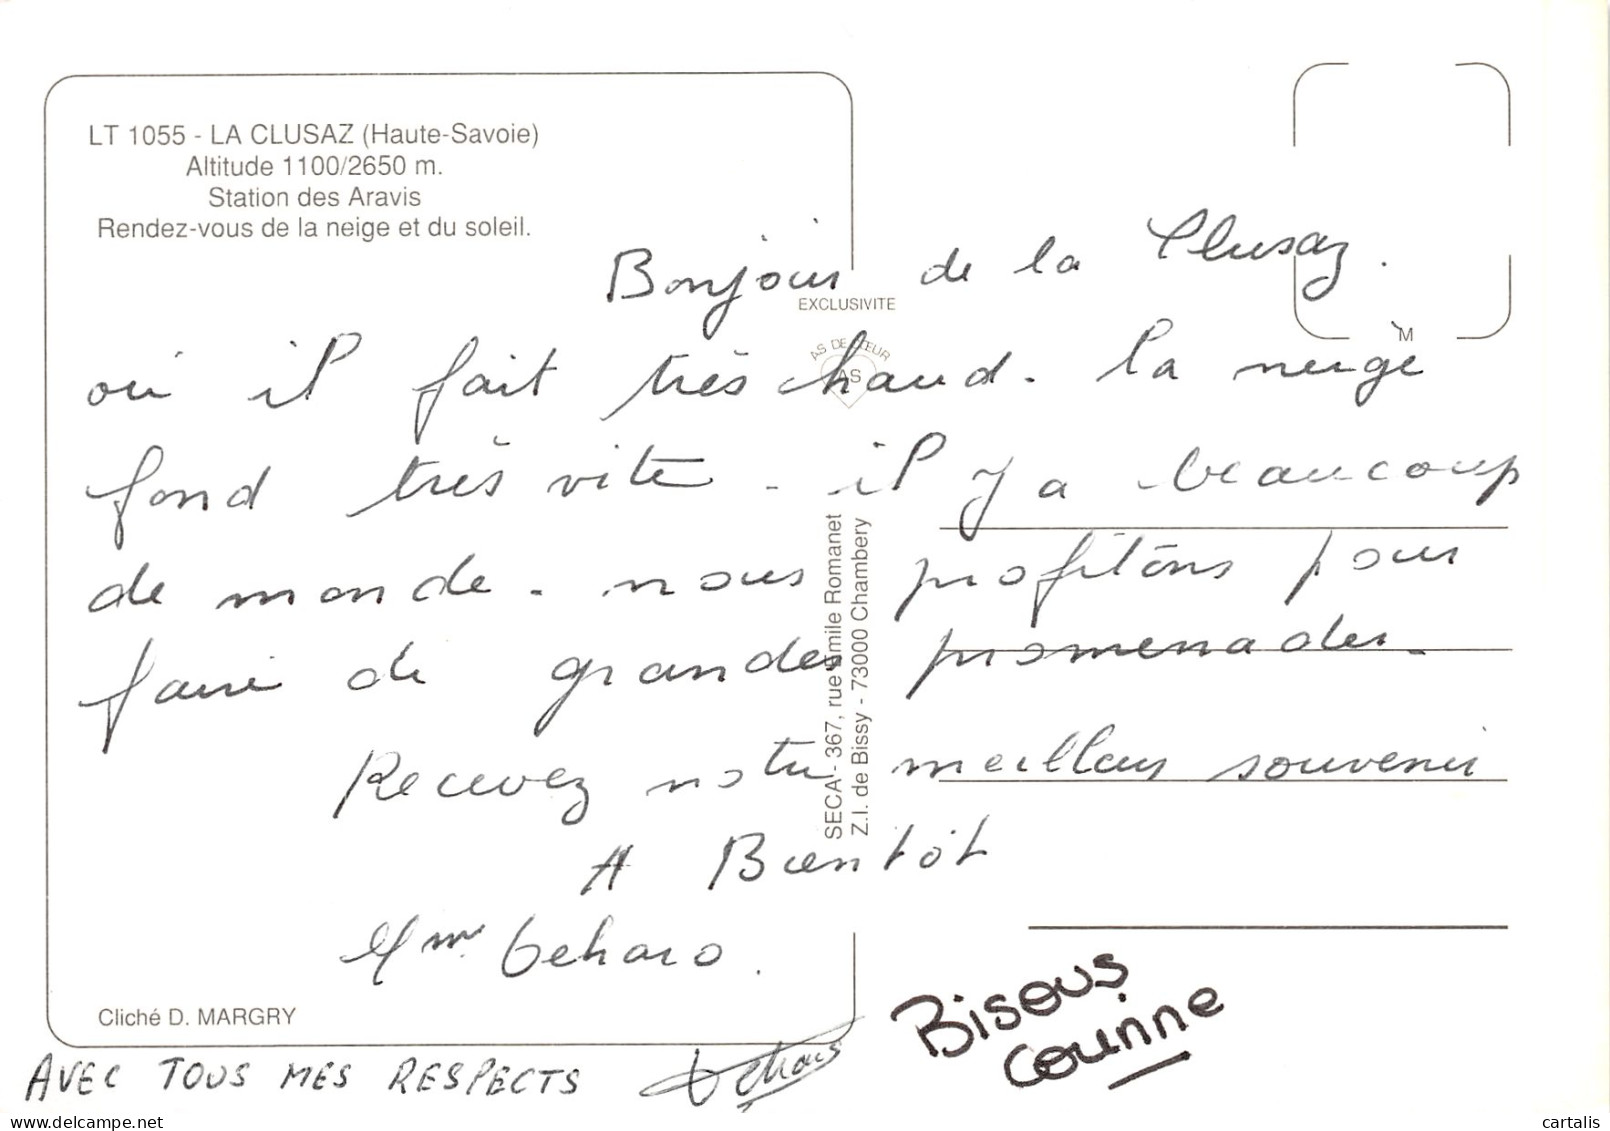 LT 1055 - LA CLUSAZ (Haute-Savoie)
Altitude 1100/2650 m.
Station des Aravis
Rendez-vous de la neige et du soleil.
Bonjour de la Clusaz.
EXCLUSIVITE
M
AS DE CŒUR
AS
où il fait très chaud. la neige
fond très vite. il y a beaucoup
de monde. nous profitons pour
faire de grandes promenades.
SECA - 367, rue Emile Romanet
Z.I. de Bissy - 73000 Chambery
Recevez notre meilleur souvenir
A Bientôt
Mme
Cliché D. MARGRY
Bisous
Corinne
AVEC TOUS MES RESPECTS
cartalis